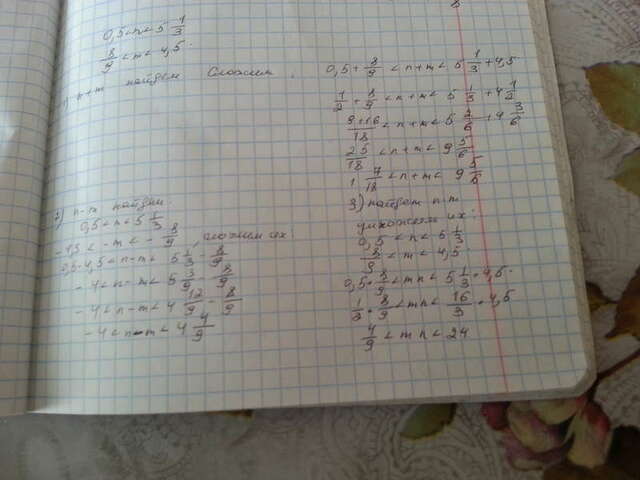 0,5<n<5 1/3
8/9 < m < 4,5.
1) n+m найдем Сложим.
0,5 + 8/9 < n+m < 5 1/3 + 4,5
1/2 + 8/9 < n+m < 5 1/3 + 4 1/2
9+16/18 < n+m < 5 2/6 + 4 3/6
25/18 < n+m < 9 5/6
1 7/18 < n+m < 9 5/6
2) n-m найдем.
0,5 < n < 5 1/3
-4,5 < -m < - 8/9, сложим их:
0,5-4,5 < n-m < 5 1/3 - 8/9
-4 < n-m < 5 3/9 - 8/9
-4 < n-m < 4 12/9 - 8/9
-4 < n-m < 4 4/9
3) найдем n·m
умножаем их:
0,5 < n < 5 1/3
8/9 < m < 4,5
0,5 · 8/9 < mn < 5 1/3 · 4,5.
1/2 · 8/9 < mn < 16/3 · 4,5
4/9 < mn < 24